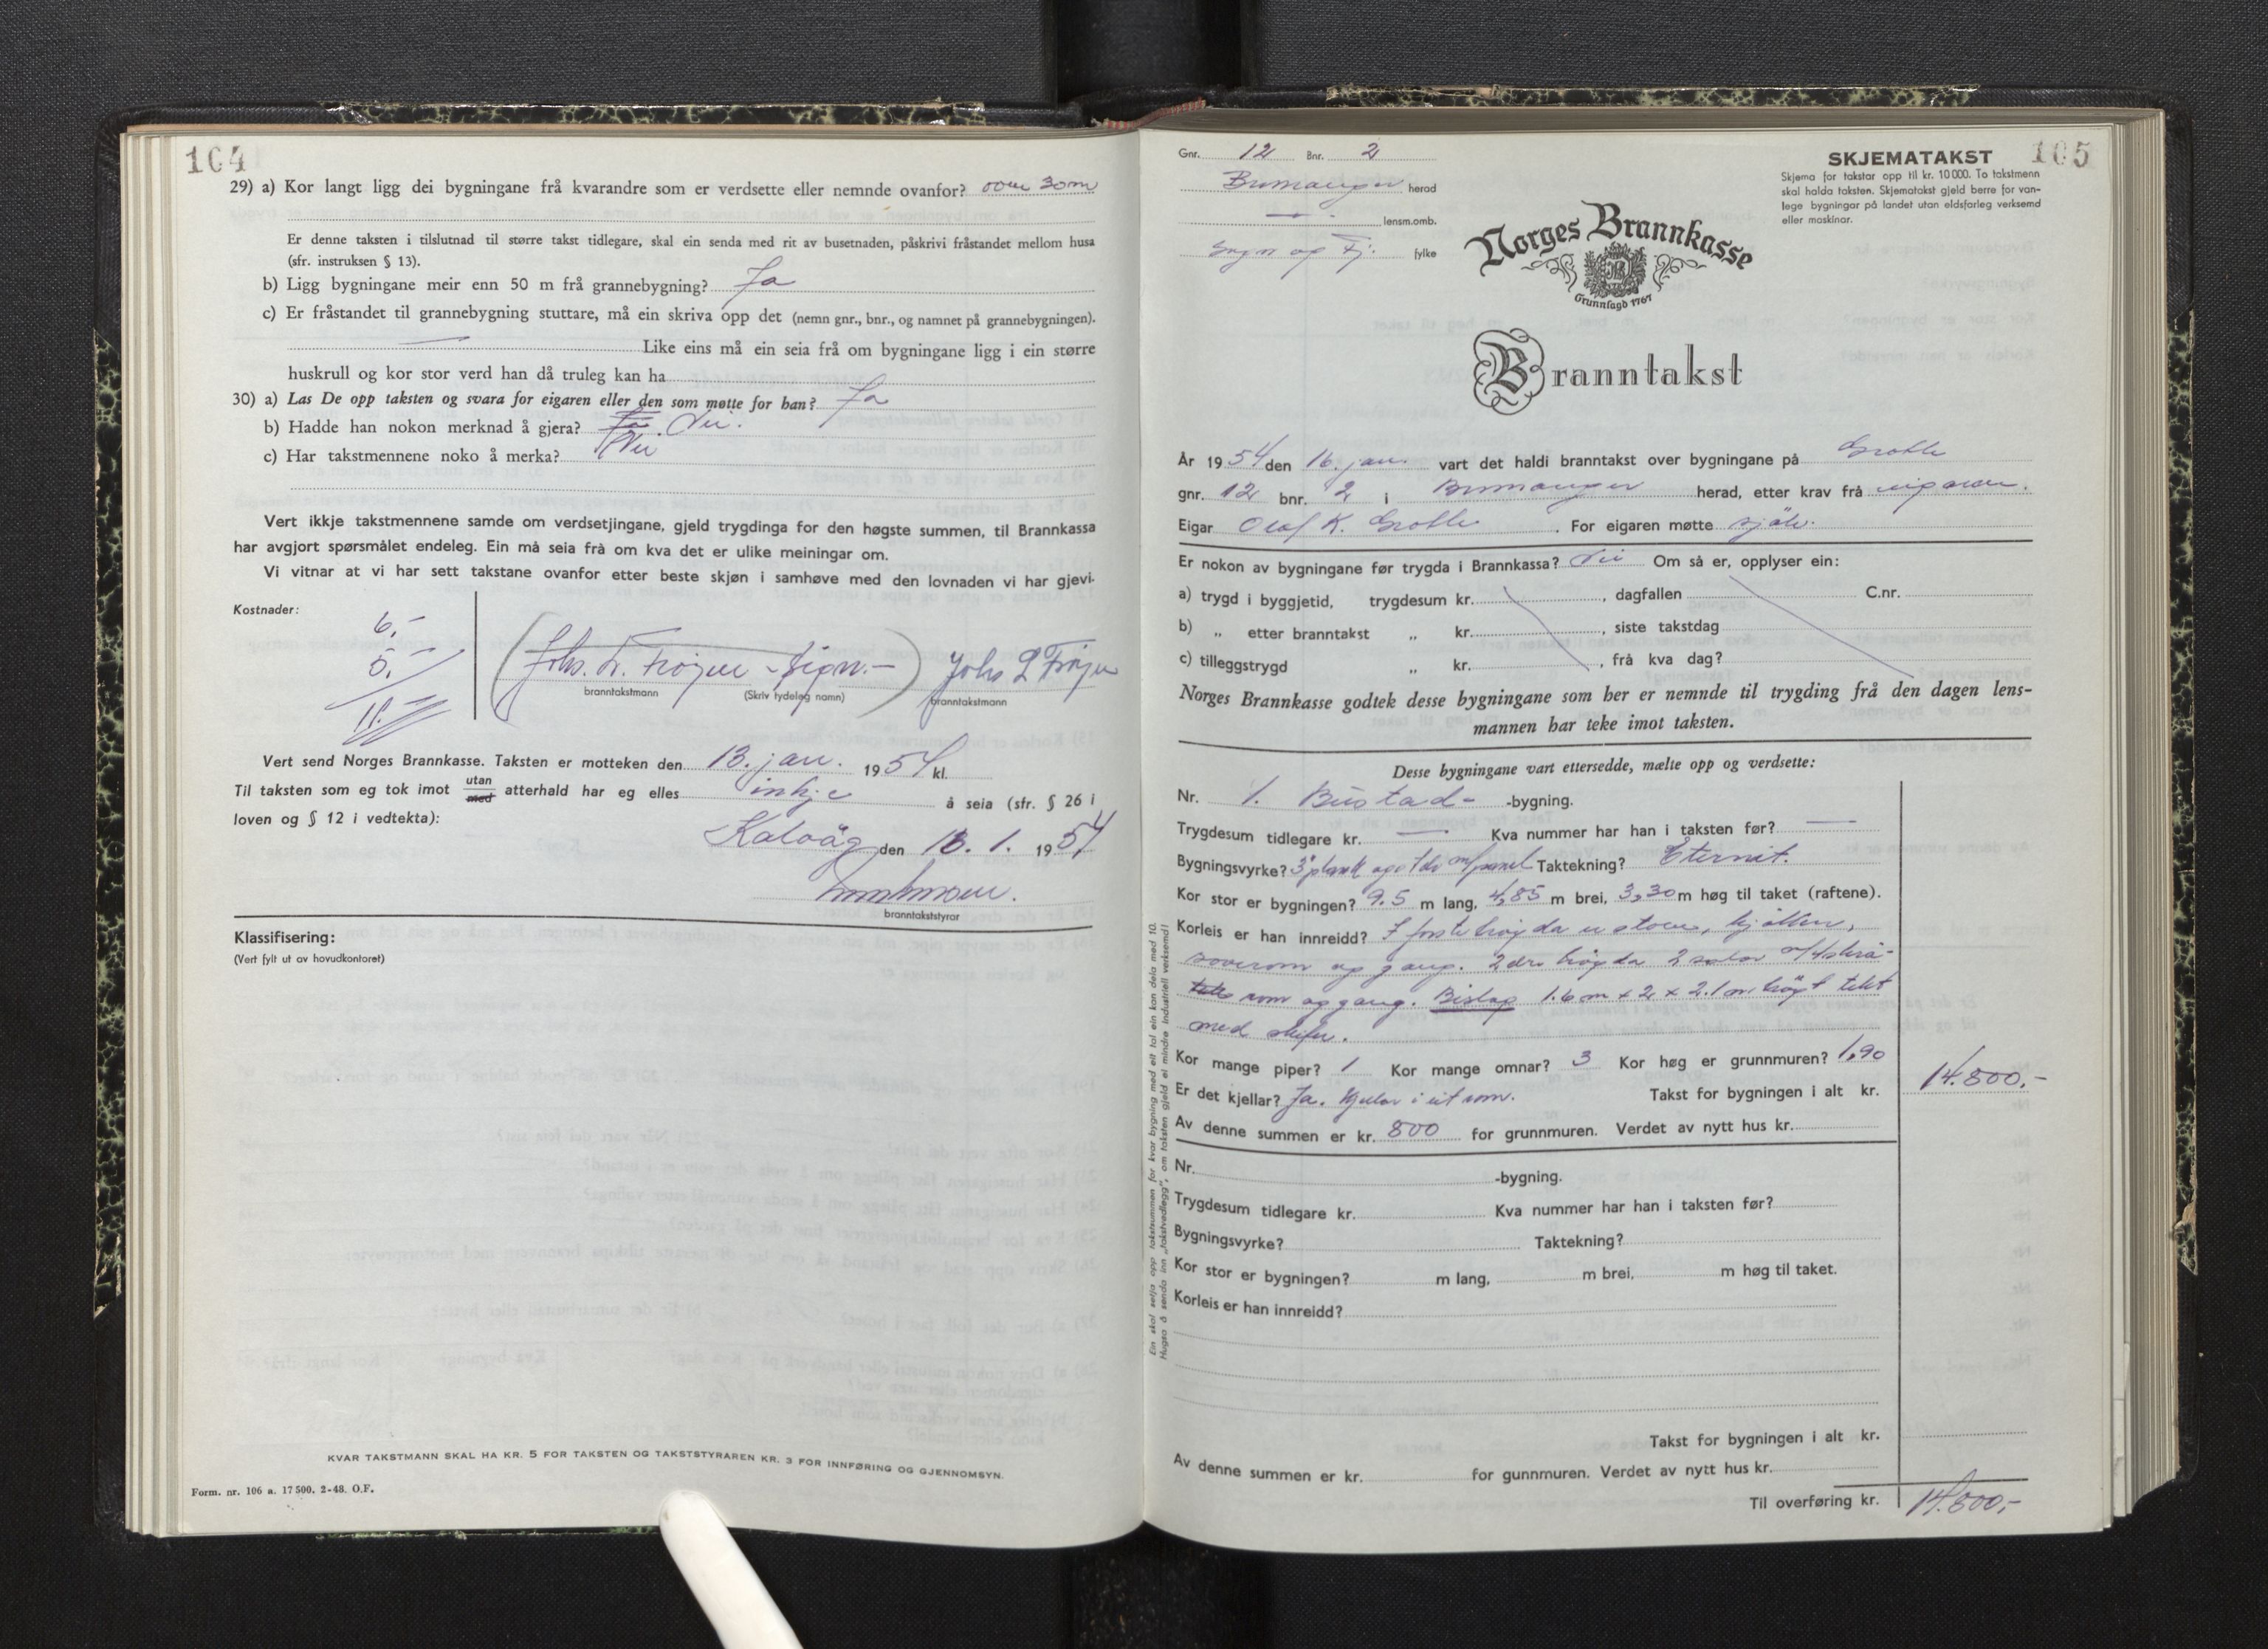 104
29) a) Kor langt ligg dei bygningane frå kvarandre som er verdsette eller nemnde ovanfor? om 30m
Er denne taksten i tilslutnad til større takst tidlegare, skal ein senda med rit av busetnaden, påskrivi fråstandet mellom husa
(sfr. instruksen § 13).
b) Ligg bygningane meir enn 50 m frå grannebygning? Ja
c) Er fråstandet til grannebygning stuttare, må ein skriva opp det (nemn gnr., bnr., og namnet på grannebygningen).
— Like eins må ein seia frå om bygningane ligg i ein større
huskrull og kor stor verd han då truleg kan ha
30) a) Las De opp taksten og svara for eigaren eller den som møtte for han? Ja
b) Hadde han nokon merknad å gjera? Nei.
c) Har takstmennene noko å merka? Nei
Vert ikkje takstmennene samde om verdsetjingane, gjeld trygdinga for den høgste summen, til Brannkassa
har avgjort spørsmålet endeleg. Ein må seia frå om kva det er ulike meiningar om.
Vi vitnar at vi har sett takstane ovanfor etter beste skjøn i samhøve med den lovnaden vi har gjevi.
Kostnader:
6,-
5,-
11.-
(Johs. L. Frøyen - sign. -) Johs L Frøyen
branntakstmann (Skriv tydeleg namn) branntakstmann
Vert send Norges Brannkasse. Taksten er motteken den 13. jan. 1954 kl.
Til taksten som eg tok imot utan med atterhald har eg elles inkje å seia (sfr. § 26 i
loven og § 12 i vedtekta):
Kalvåg den 13. 1. 1954
branntakststyrar
Klassifisering:
(Vert fylt ut av hovudkontoret)
KVAR TAKSTMANN SKAL HA KR. 5 FOR TAKSTEN OG TAKSTSTYRAREN KR. 3 FOR INNFØRING OG GJENNOMSYN.
Form. nr. 106 a. 17 500. 2-48. O.F.
Gnr. 12 Bnr. 2
Bremanger herad
— lensm.omb.
Sogn og Fj. fylke
SKJEMATAKST 105
Skjema for takstar opp til kr. 10 000. To takstmenn
skal halda taksten. Skjematakst gjeld berre for van-
lege bygningar på landet utan eldsfarleg verksemd
eller maskinar.
Norges Brannkasse
Grunnlagd 1767
Branntakst
År 1954 den 16. jan. vart det haldi branntakst over bygningane på Grotle
gnr. 12 bnr. 2 i Bremanger herad, etter krav frå eigaren.
Eigar Olaf K. Grotle. For eigaren møtte sjølv.
Er nokon av bygningane før trygda i Brannkassa? Nei Om så er, opplyser ein:
a) trygd i byggjetid, trygdesum kr. , dagfallen C.nr.
b) „ etter branntakst „ kr. , siste takstdag
c) tilleggstrygd „ kr. , frå kva dag?
Norges Brannkasse godtek desse bygningane som her er nemnde til trygding frå den dagen lens-
mannen har teke imot taksten.
Desse bygningane vart ettersedde, mælte opp og verdsette:
Nr. 1. Bustad- -bygning.
Trygdesum tidlegare kr. — Kva nummer har han i taksten før? —
Bygningsvyrke? 3" plank m/panel Taktekning? Eternit.
Kor stor er bygningen? 9.5 m lang, 4,85 m brei, 3,30 m høg til taket (raftene).
Korleis er han innreidd? I første høgda er stove, kjøkken,
soverom og gang. 2dre høgda 2 salar m/4 skrå-
rom og gang. Bislag 1.6 m x 2 x 2.1 m høgt tekt
med skifer.
Kor mange piper? 1 Kor mange omnar? 3 Kor høg er grunnmuren? 1,90
Er det kjellar? Ja. Kjellar i eit rom. Takst for bygningen i alt kr. 14.800,-
Av denne summen er kr. 800 for grunnmuren. Verdet av nytt hus kr.
Nr. -bygning.
Trygdesum tidlegare kr. Kva nummer har han i taksten før?
Bygningsvyrke? Taktekning?
Kor stor er bygningen? m lang, m brei, m høg til taket.
Korleis er han innreidd?
Takst for bygningen i alt kr.
Av denne summen er kr. for gunnmuren. Verdet av nytt hus kr.
Til overføring kr. 14.800,-
Ein skal setja opp takstsummen for kvar bygning med eit tal ein kan dela med 10.
Hugsa å senda inn „takstvedlegg", om taksten gjeld ei mindre industriell verksemd!